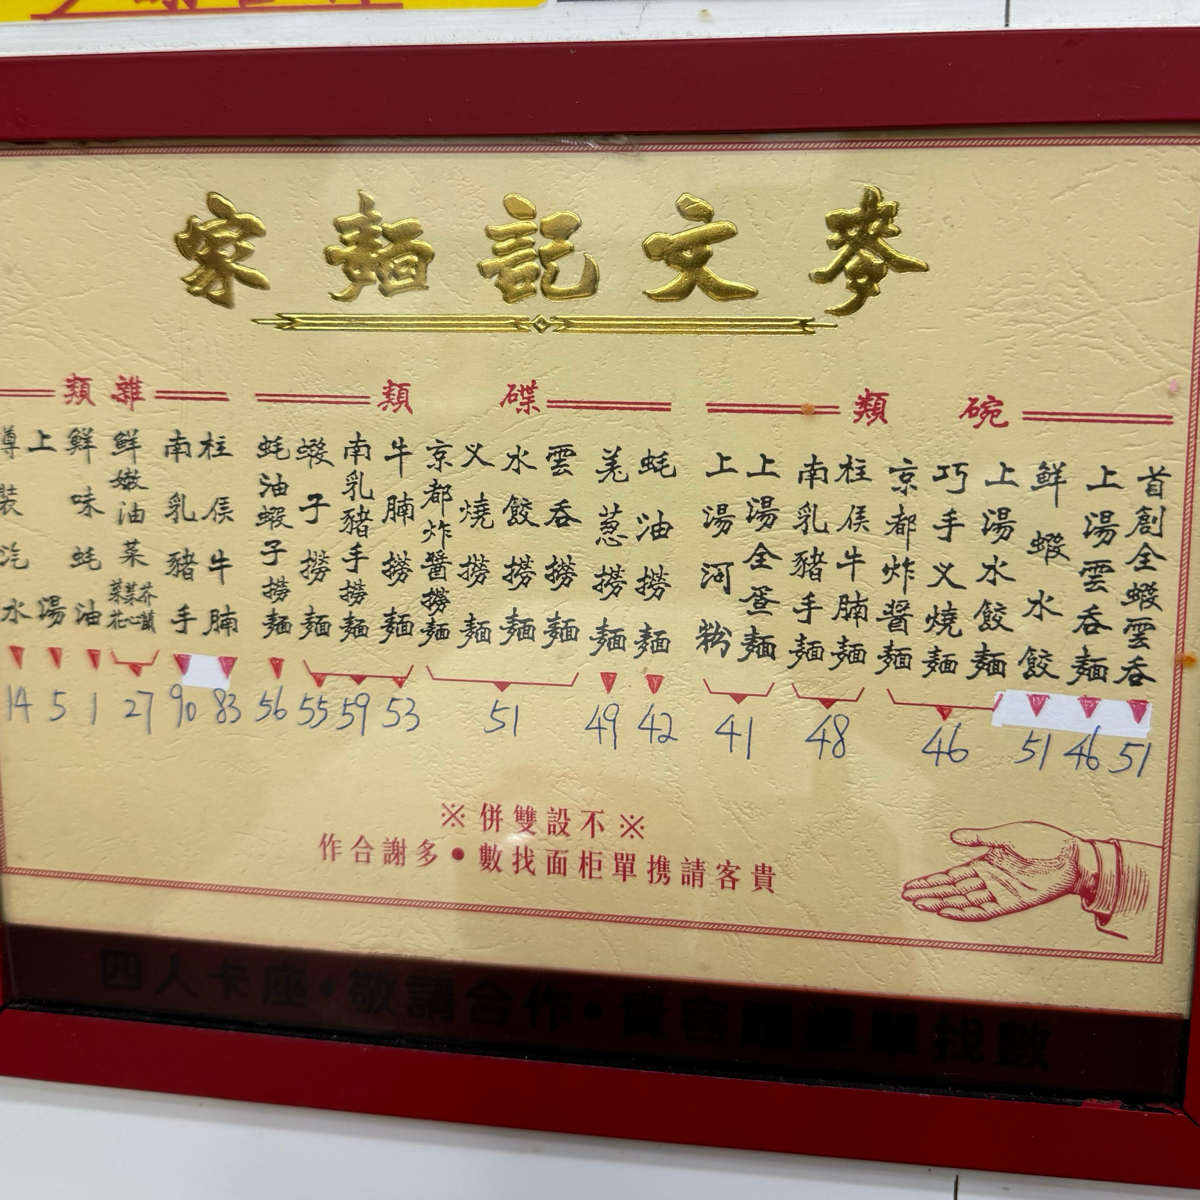 麥文記麵家
碗類
首創全蝦雲吞 51
上湯雲吞麵 46
鮮蝦水餃 51
上湯水餃麵
巧手义燒麵
京都炸醬麵
46
柱侯牛腩麵
南乳豬手麵
48
上湯全蛋麵
上湯河粉
41
碟類
蚝油撈麵 42
羗葱撈麵 49
雲吞撈麵
水餃撈麵
义燒撈麵
京都炸醬撈麵
51
牛腩撈麵 53
南乳豬手撈麵 59
蝦子撈麵 55
蚝油蝦子撈麵 56
雜類
柱侯牛腩 83
南乳豬手 90
鮮嫩油菜 27
鮮味蚝油 1
上湯 5
樽裝汽水 14
※不設雙併※
貴客請携單柜面找數•多謝合作
四人卡座•敬請合作•貴客請攜單找數